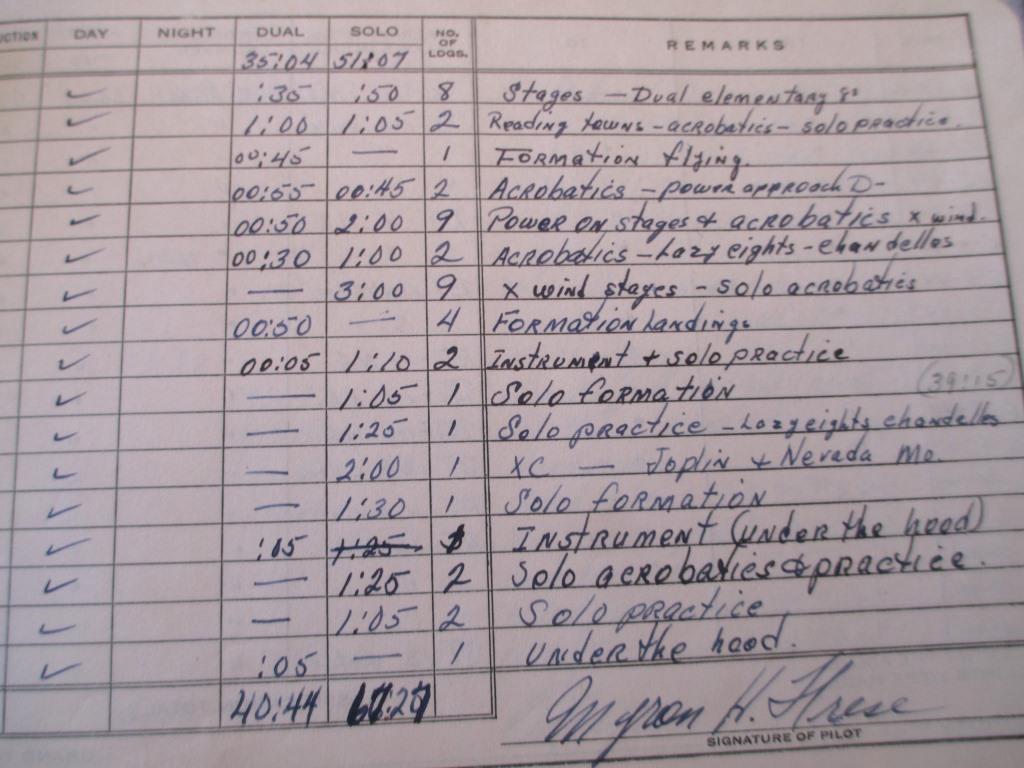 UCTION DAY NIGHT DUAL SOLO NO. OF LDGS. REMARKS
35:04 51:07
:35 :50 8 Stages - Dual elementary 8s
1:00 1:05 2 Reading towns - acrobatics - solo practice.
00:45 — 1 Formation flying.
00:55 00:45 2 Acrobatics - power approach D-
00:50 2:00 9 Power on stages & acrobatics x wind.
00:30 1:00 2 Acrobatics - Lazy eights - chandelles
— 3:00 9 x wind stages - solo acrobatics
00:50 — 4 Formation Landings
00:05 1:10 2 Instrument & solo practice
— 1:05 1 Solo formation (39:15)
— 1:25 1 Solo practice - Lazy eights chandelles
— 2:00 1 XC — Joplin & Nevada Mo.
— 1:30 1 Solo formation
:15 1:25 1 Instrument (under the hood)
— 1:25 2 Solo acrobatics & practice.
— 1:05 2 Solo practice
:05 — 1 Under the hood.
40:44
Myron H.
SIGNATURE OF PILOT